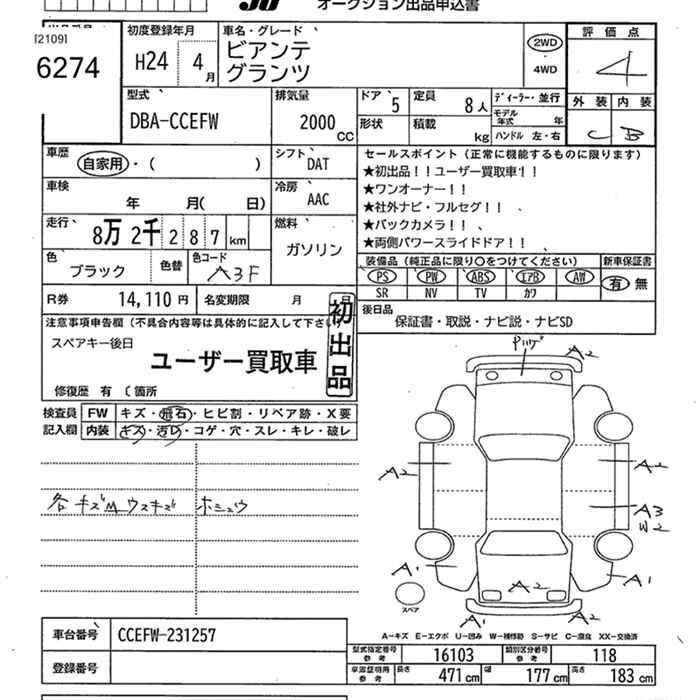 オークション出品申込書
[2109]
6274
初度登録年月
H24 4月
車名・グレード
ビアンテ
グランツ
2WD
・
4WD
評価点
4
外装 内装
C B
型式
DBA-CCEFW
排気量
2000 CC
ドア 5
定員 8人
形状
積載 kg
ディーラー・並行
モデル年式 年
ハンドル 左・右
車歴
自家用・( )
シフト
DAT
車検 年 月( 日)
冷房
AAC
走行 8万2千287km
燃料
ガソリン
色
ブラック
色替
色コード
A3F
セールスポイント(正常に機能するものに限ります)
★初出品!!ユーザー買取車!!
★ワンオーナー!!
★社外ナビ・フルセグ!!
★バックカメラ!!
★両側パワースライドドア!!
装備品(純正品に限り○をつけてください)
新車保証書
PS PW ABS エアB AW
SR NV TV カワ
有・無
R券 14,110円
名変期限 月 日
後日品
保証書・取説・ナビ説・ナビSD
注意事項申告欄(不具合内容等は具体的に記入して下さい
スペアキー後日
ユーザー買取車
初出品
修復歴 有 (箇所
検査員
記入欄
FW キズ・飛石・ヒビ割・リペア跡・X要
内装 キズ・汚レ・コゲ・穴・スレ・キレ・破レ
各キズM ウスキズ ホシュウ
A2
A2
A2
A3
W2
A1
A1
A2
A2
A1
A1
スペア
A-キズ E-エクボ U-凹み W-補修跡 S-サビ C-腐食 XX-交換済
車台番号 CCEFW-231257
登録番号
型式指定番号 参考 16103
類別区分番号 参考 118
車庫証明用 参考
長さ 471cm
幅 177cm
高さ 183cm